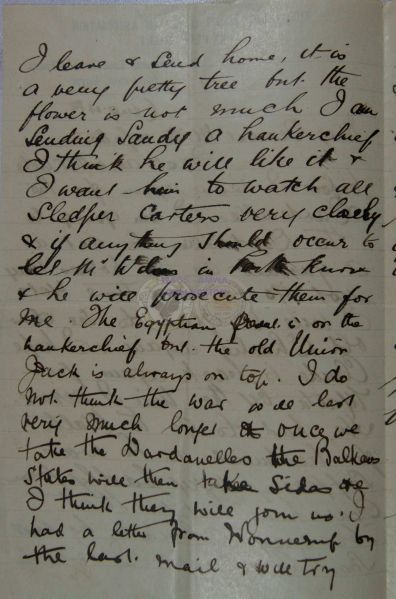 I leave & send home, it is
a very pretty tree but the
flower is not much I am
sending Sandy a hankerchief
I think he will like it &
I want him to watch all
Sledper Carters very closely
& if anything should occur to
let Mr in Perth know
& he will prosecute them for
me. The Egyptian is on the
hankerchief but the old Union
Jack is always on top. I do
not think the war will last
very much longer once we
take the Dardanelles the Balkans
States will then take sides &
I think they will join us. I
had a letter from Wonnerup by
the last mail & will try